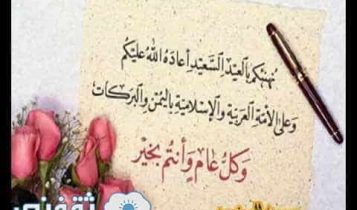 نهنئكم بالعيد السعيد أعاده الله عليكم
وعلى الأمة العربية والإسلامية باليمن والبركات
وكل عام وأنتم بخير
ثقفني